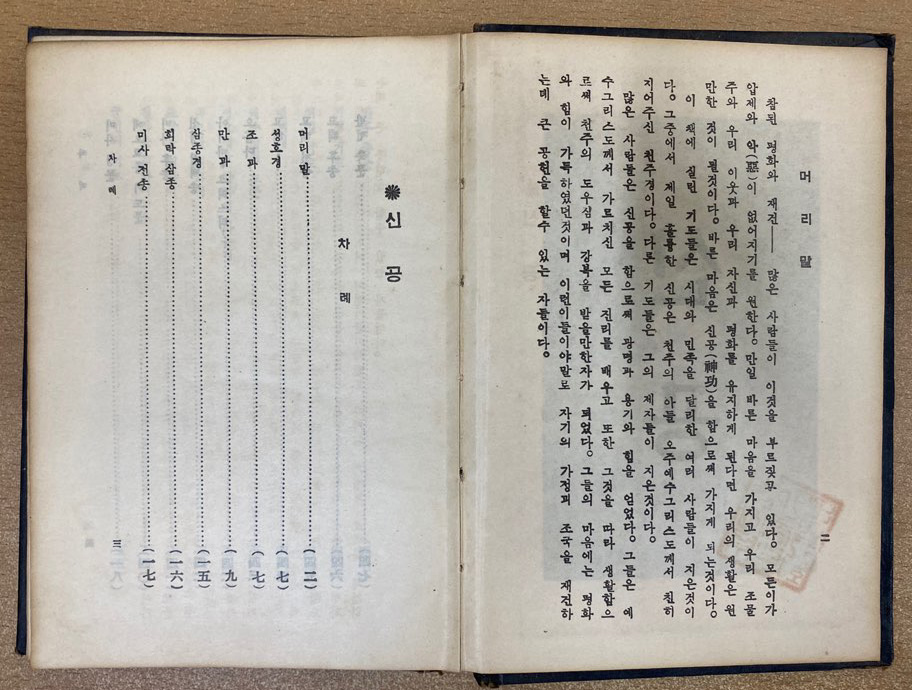 머 리 말
참된 평화와 재건—— 많은 사람들이 이것을 부르짖꾸 있다。모든이가
압제와 악(惡)이 없어지기를 원한다。만일 바른 마음을 가지고 우리 조물
주와 우리 이웃과 우리 자신과 평화를 유지하게 된다면 우리의 생활은 원
만한 것이 될것이다。바른 마음은 신공(神功)을 함으로써 가지게 되는것이다。
이 책에 실린 기도들은 시대와 민족을 달리한 여러 사람들이 지은것이
다。그중에서 제일 훌륭한 신공은 천주의 아들 오주예수그리스도께서 친히
지어주신 천주경이다。다른 기도들은 그의 제자들이 지은것이다。
많은 사람들은 신공을 함으로써 광명과 용기와 힘을 얻었다。그들은 예
수그리스도께서 가르치신 모든 진리를 배우고 또한 그것을 따라 생활함으
르써 천주의 도우심과 강복을 받을만한자가 되었다。그들의 마음에는 평화
와 힘이 가득하였던것이며 이런이들이야말로 자기의 가정과 조국을 재건하
는데 큰 공헌을 할수 있는 자들이다。
二
✺신 공
차 례
머리말 (二)
성호경 (七)
조과 (七)
만과 (九)
삼종경 (一五)
희락삼종 (一六)
미사전송 (一七)
차 례
三